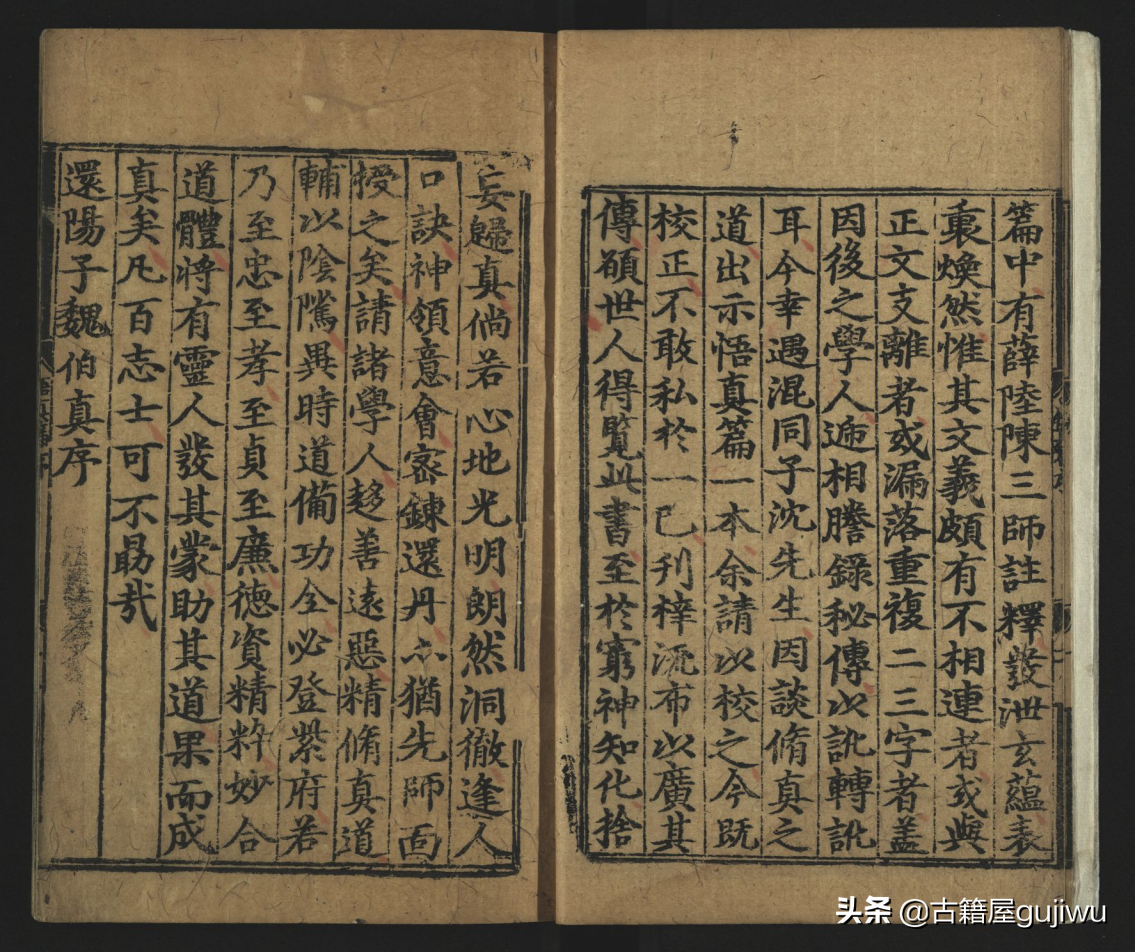 篇中有薛陸陳三師註釋發泄玄蘊表
裏煥然惟其文義頗有不相連者或與
正文支離者或漏落重復二三字者蓋
因後之學人逓相謄錄秘傳以訛轉訛
耳今幸遇混同子沈先生因談脩真之
道出示悟真篇一本余請以校之今既
校正不敢私於一己刋梓流布以廣其
傳頋世人得覽此書至於窮神知化捨
妄歸真倘若心地光明朗然洞徹逢人
口訣神領意會宻鍊還丹亦猶先師面
授之矣請諸學人趍善遠惡精脩真道
輔以陰隲異時道備功全必登紫府若
乃至忠至孝至貞至廉德資精粹妙合
道體将有靈人發其蒙助其道果而成
真矣凡百志士可不勗哉
還陽子魏伯真序
头条 @古籍屋gujiwu